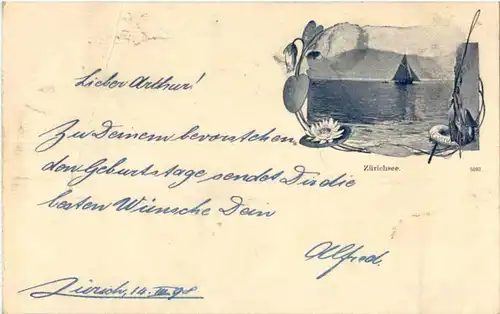 Lieber Arthur!
Zu Deinem bevorstehen
den Geburtstage sendet Dir die
besten Wünsche Dein
Zürichsee.
Alfred.
Zürich, 14. III. 98